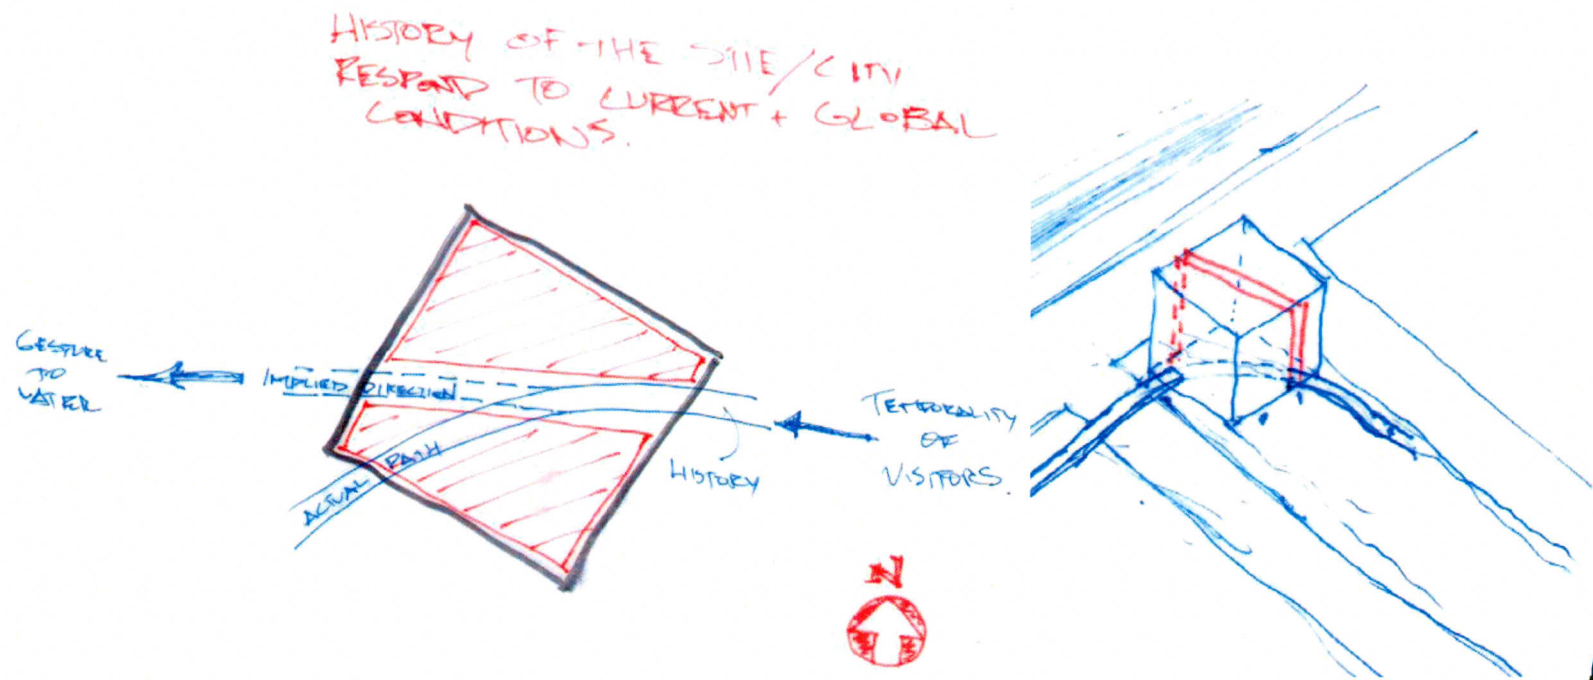 HISTORY OF THE SITE/CITY
RESPOND TO CURRENT + GLOBAL
CONDITIONS.
GESTURE
TO
WATER
IMPLIED DIRECTION
ACTUAL PATH
HISTORY
TEMPORALITY
OF
VISITORS.
N